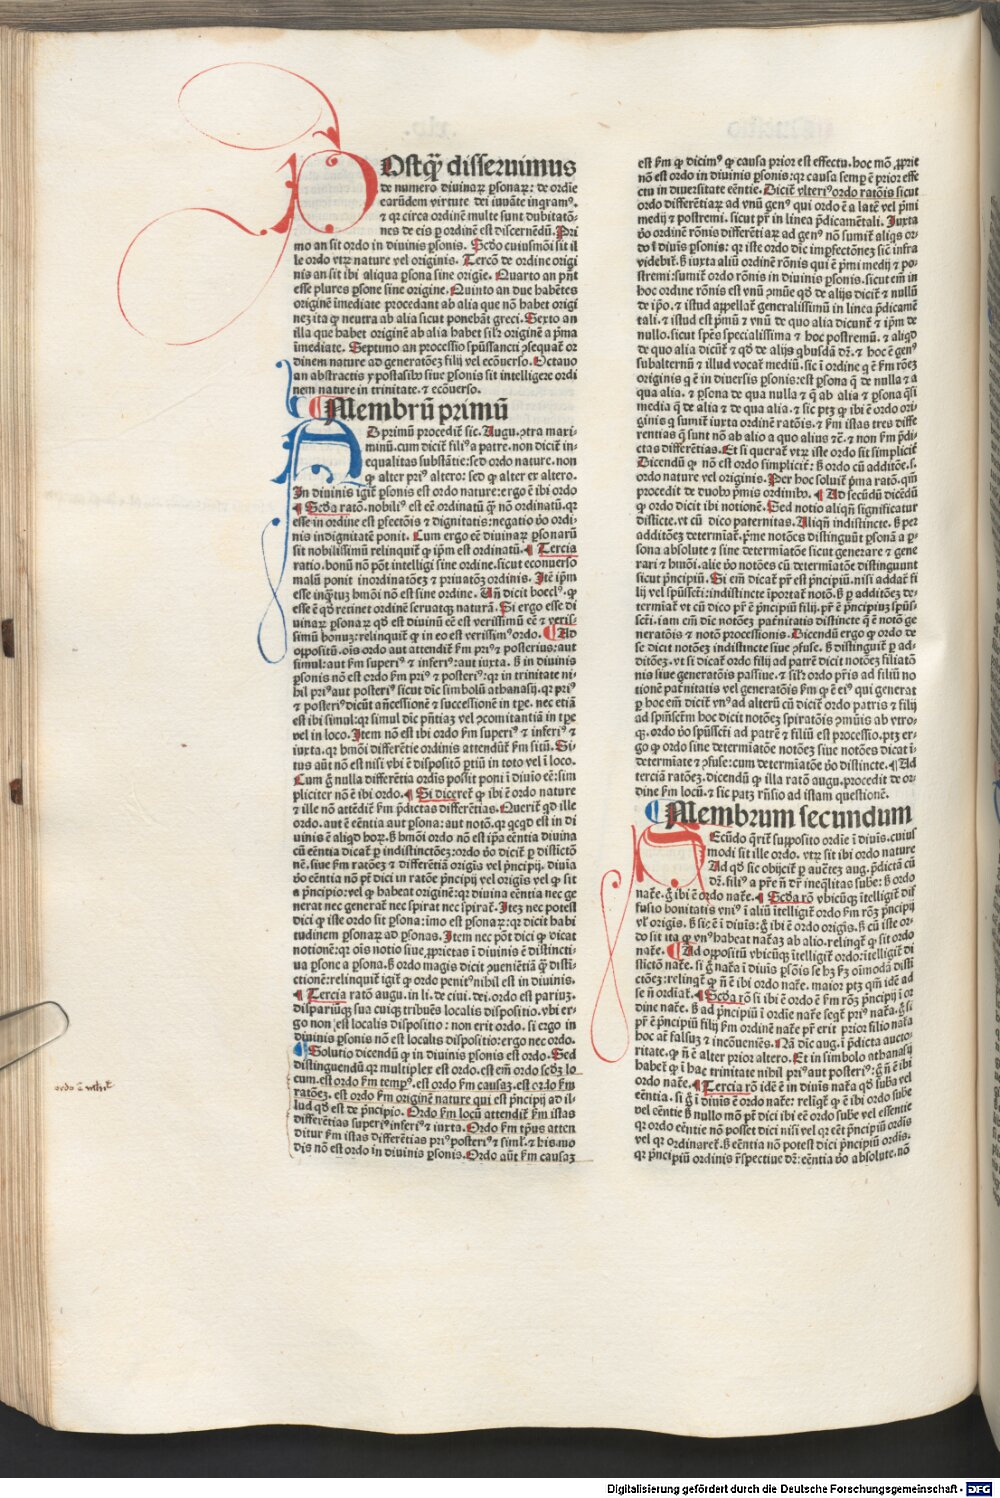 POstq̃ disseruimus
de numero diuinaꝝ ꝑsonaꝝ: de ordīe
earūdem virtute dei iuuāte inqram⁹.
⁊ qꝛ circa ordinē multe sunt dubitatõ-
nes de eis ꝑ ordinē est discernēdū. Pri
mo an sit ordo in diuinis ꝑsonis. Scďo cuiusmõi sit il
le ordo vtꝝ nature vel originis. Tercõ de ordine origi
nis an sit ibi aliqua ꝑsona sine origīe. Quarto an pn̄t
esse plures ꝑsone sine origine. Quinto an due habētes
originē īmediate procedant ab alia que nõ habet origi
neꝫ ita ꝙ neutra ab alia sicut ponebāt greci. Sexto an
illa que habet originē ab alia habet silꝛ originē a pⁱma
īmediate. Septimo an processio spūssancti ꝯsequat̄ or
dinem nature ad generatõeꝫ filij vel ecõuerso. Octauo
an abstractis ypostasibꝰ siue ꝑsonis sit intelligere ordi
nem nature in trinitate. ⁊ ecõuerso.
¶Membrū primū
AD primū procedit̄ sic. Augu. ꝯtra maxi-
minū. cum dicit̄ fili⁹ a patre. non dicit̄ in-
equalitas substātie: sed ordo nature. non
ꝙ alter pri⁹ altero: sed ꝙ alter ex altero.
In diuinis igit̄ ꝑsonis est ordo nature: ergo ē ibi ordo
¶ Scďa ratõ. nobili⁹ est eē ordinatū q̄ nõ ordinatū. qꝛ
esse in ordine est ꝑfectõis ⁊ dignitatis: negatio ṽo ordi-
nis indignitatē ponit. Cum ergo eē diuinaꝝ ꝑsonarū
sit nobilissimū relinquit̄ ꝙ ip̄m est ordinatū. ¶ Tercia
ratio. bonū nõ põt intelligi sine ordine. sicut econuerso
malū ponit inordinatõeꝫ ⁊ priuatõꝫ ordinis. Itē ip̄m
esse inqtuꝫ hmõi nõ est sine ordine. Un̄ dicit boeci⁹. ꝙ
esse ē qď retinet ordinē seruatqꝫ naturā. Si ergo esse di
uinaꝝ ꝑsonaꝝ qď est diuinū eē est verissimū eē ⁊ veris-
simū bonuꝫ: relinquit̄ ꝙ in eo est verissim⁹ ordo. ¶Ad
oppositū. oīs ordo aut attendit̄ ẜm pri⁹ ⁊ posterius: aut
simul: aut ẜm superi⁹ ⁊ inferi⁹: aut iuxta. ẜꝫ in diuinis
ꝑsonis nõ est ordo ẜm pri⁹ ⁊ posteri⁹: qꝛ in trinitate ni-
hil pri⁹ aut posteri⁹ sicut dīc simbolū athanasij. qꝛ pri⁹
⁊ posteri⁹ dicūt añcessionē ⁊ successionē in tꝑe. nec etiā
est ibi simul: qꝛ simul dīc pn̄tiaꝫ vel ꝯcomitantiā in tꝑe
vel in loco. Item nõ est ibi ordo ẜm superi⁹ ⁊ inferi⁹ ⁊
iuxta. qꝛ hmõi differētie ordinis attendūt̄ ẜm sitū. Si-
tus aūt nõ est nisi vbi ē dispositõ ꝑtiū in toto vel ī loco.
Cum g̊ nulla differētia ordīs possit poni ī diuīo eē: sim
pliciter nõ ē ibi ordo. ¶ Si diceret̄ ꝙ ibi ē ordo nature
⁊ ille nõ attēdit̄ ẜm p̄dictas differētias. Querit̄ qď ille
ordo. aut ē eēntia aut ꝑsona: aut notõ. qꝛ qcqd est in di
uinis ē aliqd hoꝝ. ẜꝫ hmõi ordo nõ est ip̄a eēntia diuina
cū eēntia dicat̄ ꝑ indistinctõeꝫ: ordo ṽo dicit̄ ꝑ distictõ
nē. siue ẜm ratõeꝫ ⁊ differētiā origīs vel p̄ncipij. diuīa
ṽo eēntia nõ pt̄ dici in ratõe p̄ncipij vel origīs vel ꝙ sit
a p̄ncipio: vel ꝙ habeat originē: qꝛ diuina eēntia nec ge
nerat nec generat̄ nec spirat nec spirat̄. Iteꝫ nec potest
dici ꝙ iste ordo sit ꝑsona: imo est ꝑsonaꝝ: qꝛ dicit habi
tudinem ꝑsonaꝝ ad ꝑsonas. Item nec põt dici ꝙ dicat
notionē: qꝛ oīs notio siue ꝓprietas ī diuinis ē distincti-
ua ꝑsone a ꝑsona. ẜꝫ ordo magis dicit ꝯueniētiā q̄ disti-
ctionē: relinquit̄ igit̄ ꝙ ordo penit⁹ nihil est in diuinis.
¶ Tercia ratõ augu. in li. de ciui. dei. ordo est pariuꝫ.
dispariuqꝫ sua cuiqꝫ tribuēs localis dispositio. vbi er-
go non est localis dispositio: non erit ordo. si ergo in
diuinis ꝑsonis nõ est localis dispositio: ergo nec ordo.
¶Solutio dicendū ꝙ in diuinis ꝑsonis est ordo. Sed
distinguendū qꝛ multiplex est ordo. est em̄ ordo scďꝫ lo
cum. est ordo ẜm temp⁹. est ordo ẜm causaꝫ. est ordo ẜm
ratõeꝫ. est ordo ẜm originē nature qui est p̄ncipij ad il-
lud qď est de p̄ncipio. Ordo ẜm locū attendit̄ ẜm istas
differētias superi⁹ inferi⁹ ⁊ iuxta. Ordo ẜm tp̄us atten
ditur ẜm istas differētias pri⁹ posteri⁹ ⁊ siml̄. ⁊ his mo
dis nõ est ordo in diuinis ꝑsonis. Ordo aūt ẜm causaꝫ
est ẜm ꝙ dicim⁹ ꝙ causa prior est effectu. hoc mõ ꝓprie
nõ est ordo in diuinis ꝑsonis: qꝛ causa semꝑ ē prior effe
ctu in diuersitate eēntie. Dicit̄ vlteri⁹ ordo ratõis sicut
ordo differētiaꝝ ad vnū gen⁹ qui ordo ē a latē vel pⁱmi
medij ⁊ postremi. sicut pt̄ in linea p̄dicamētali. Iuxta
ṽo ordinē rõnis differētiaꝝ ad gen⁹ nõ sumit̄ aliqs or-
do ī diuīs ꝑsonis: qꝛ iste ordo dīc imꝑfectõneꝫ sic̄ infra
videbit̄. ẜꝫ iuxta aliū ordinē rõnis qui ē pⁱmi medij ⁊ po-
stremi: sumit̄ ordo rõnis in diuinis ꝑsonis. sicut em̄ in
hoc ordine rõnis est vnū ꝯmūe qď de alijs dicit̄ ⁊ nullū
de ip̄o. ⁊ istud appellat̄ generalissimū in linea p̄dicamē
tali. ⁊ istud est pⁱmū ⁊ vnū de quo alia dicunt̄ ⁊ ip̄m de
nullo. sicut spēs specialissima ⁊ hoc postremū. ⁊ aliqd
de quo alia dicūt̄ ⁊ qď de alijs qbusdā dꝛ. ⁊ hoc ē gen⁹
subalternū ⁊ illud vocat̄ mediū. sic ī ordine q ē ẜm rõeꝫ
originis q ē in diuersis ꝑsonis: est ꝑsona q̄ de nulla ⁊ a
qua alia. ⁊ ꝑsona de qua nulla ⁊ q̄ ab alia ⁊ ꝑsona q̄si
media q̄ de alia ⁊ de qua alia. ⁊ sic ptꝫ ꝙ ibi ē ordo ori-
ginis q sumit̄ iuxta ordinē ratõis. ⁊ ẜm istas tres diffe
rentias q̄ sunt nõ ab alio a quo alius ⁊c̄. ⁊ non ẜm p̄di-
ctas differētias. Et si querat̄ vtꝝ iste ordo sit simplicit̄
Dicendū ꝙ nõ est ordo simplicit̄: ẜꝫ ordo cū additõe. s.
ordo nature vel originis. Per hoc soluit̄ pⁱma ratõ. qm̄
procedit de duobꝰ pⁱmis ordinibꝰ. ¶ Ad secūdū dicēdū
ꝙ ordo dicit ibi notionē. Sed notio aliqn̄ significatur
disticte. vt cū dico paternitas. Aliqn̄ indistincte. ẜꝫ per
additõeꝫ determīat̄. pⁱme notões distingūūt ꝑsonā a ꝑ-
sona absolute ⁊ sine determiatõe sicut generare ⁊ gene
rari ⁊ hmõi. alie ṽo notões cū determiatõe distinguunt
sicut p̄ncipiū. Si em̄ dicat̄ pr̄ est p̄ncipiū. nisi addat̄ fi
lij vel spūsscti: indistincte īportat̄ notõ. ẜꝫ ꝑ additõeꝫ de-
termiat̄ vt cū dico pr̄ ē p̄ncipiū filij. pr̄ ē p̄ncipiuꝫ spūs-
scti. iam em̄ dic̄ notões pat̄nitatis distincte q̄ ē notõ ge
neratõis ⁊ notõ processionis. Dicendū ergo ꝙ ordo de
se dicit notões indistincte siue ꝯfuse. ẜꝫ distinguit̄ ꝑ ad-
ditõeꝫ. vt si dicat̄ ordo filij ad patrē dicit notõeꝫ filiatõ
nis siue generatõis passiue. ⁊ silꝛ ordo pr̄is ad filiū no
tionē pat̄nitatis vel generatõis ẜm ꝙ ē ei⁹ qui generat
ꝑ hoc em̄ dicit̄ vn⁹ ad alterū cū dicit̄ ordo patris ⁊ filij
ad spm̄sctm̄ hoc dicit notõeꝫ spiratõis ꝯmūis ab vtro-
qꝫ. ordo ṽo spūsscti ad patrē ⁊ filiū est processio. ptꝫ er-
go ꝙ ordo sine determiatõe notõeꝫ siue notões dicat ī-
determiate ⁊ ꝯfuse: cum determiatõe ṽo distincte. ¶Ad
terciā ratõeꝫ. dicendū ꝙ illa ratõ augu. procedit de or-
dine ẜm locū. ⁊ sic patꝫ rn̄sio ad istam questionē.
¶Membrum secundum
SEcūdo q̄rit̄ supposito ordīe ī diuīs. cuius
modi sit ille ordo. vtꝝ sit ibi ordo nature
Ad qď sic obijcit̄ ꝑ auctēꝫ aug. p̄dictā cū
dꝛ. fili⁹ a pr̄e n̄ dꝛ ineq̄litas sube: ẜꝫ ordo
nat̄e. g̊ ibi ē ordo nat̄e. ¶ Scďa rõ vbicūqꝫ ītelligit̄ dif
fusio bonitatis vni⁹ ī aliū ītelligit̄ ordo ẜm rõꝫ p̄ncipij
vl̄ origīs. ẜꝫ sic ē ī diuīs: g̊ ibi ē ordo origīs. ẜꝫ cū iste or-
do sit ita ꝙ vn⁹ habeat nat̄aꝫ ab alio. relinqt̄ ꝙ sit ordo
nat̄e. ¶Ad oppositū vbicūqꝫ ītelligit̄ ordo: ītelligit̄ di
stictõ nat̄e. si g̊ nat̄a ī diuīs ꝑsõis se hꝫ ẜꝫ oīmodā disti
ctõeꝫ: relinqt̄ ꝙ n̄ ē ibi ordo nat̄e. maior ptꝫ qm̄ idē ad
se n̄ ordiat̄. ¶ Scďa rõ si ibi ē ordo ē ẜm rõꝫ p̄ncipij ī or
dine nat̄e. ẜꝫ ad p̄ncipiū ī ordīe nat̄e seqt̄ pri⁹ nat̄a. g̊ si
pr̄ ē p̄ncipiū filij ẜm ordinē nat̄e pr̄ erit prior filio nat̄a
hoc āt falsuꝫ ⁊ incõueniēs. Nā dīc aug. ī p̄dicta aucto
ritate. ꝙ n̄ ē alter prior altero. Et in simbolo athanasij
habet̄ ꝙ ī hac trinitate nihil pri⁹ aut posteri⁹: g̊ n̄ ē ibi
ordo nat̄e. ¶ Tercia rõ idē ē in diuīs nat̄a qď suba vel
eēntia. si g̊ ī diuīs ē ordo nat̄e: relīqt̄ ꝙ ē ibi ordo sube
vel eēntie ẜꝫ nullo mõ pt̄ dici ibi eē ordo sube vel essentie
qꝛ ordo eēntie nõ posset dici nisi vel qꝛ eēt p̄ncipiū ordīs
vel qꝛ ordinaret̄. ẜꝫ eēntia nõ potest dici p̄ncipiū ordīs.
qꝛ p̄ncipiū ordinis r̄spectiue dꝛ: eēntia ṽo absolute. nõ
Digitalisierung gefördert durch die Deutsche Forschungsgemeinschaft - DFG